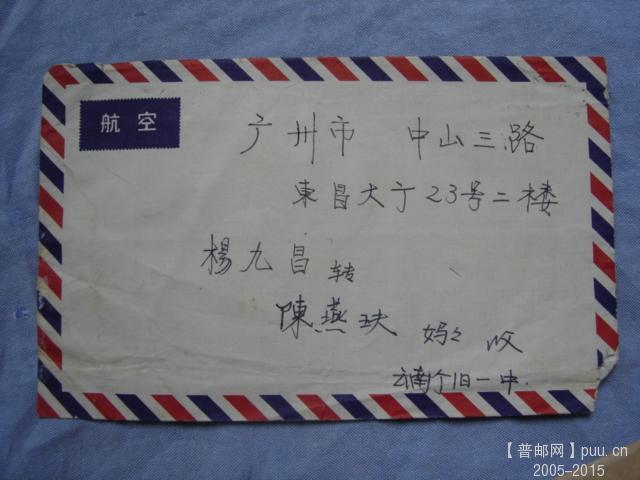 航空
广州市 中山三路
東昌大厅23号二楼
楊九昌 转
陳燕玞 妈々 收
云南个旧一中.
【普邮网】puu.cn
2005-2015